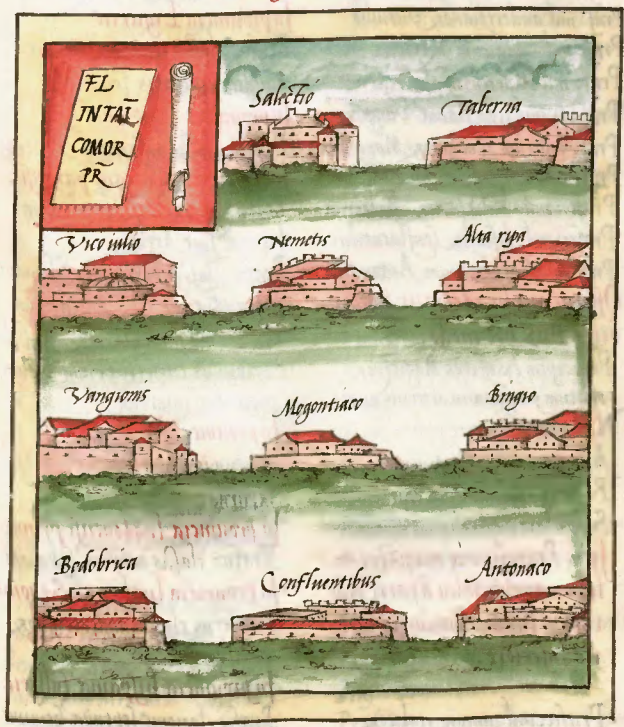 FL
INTAL̄
COMOR
PR̄
Salectio
Taberna
Vico iulio
Nemetis
Alta ripa
Vangionis
Mogontiaco
Bingio
Bodobrica
Confluentibus
Antonaco